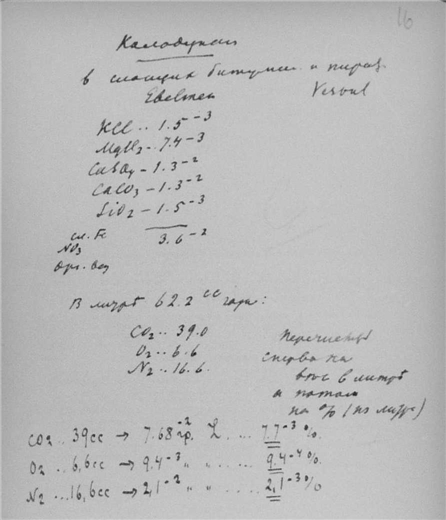 16
в сланцах битумин. и пирит.
Ebelmen Vesoul
KCl .. 1.5⁻³
MgCl₂ – 7.4⁻³
CaSO₄ – 1.3⁻²
CaCO₃ – 1.3⁻²
SiO₂ – 1.5⁻³
сл. Fe 3.6⁻²
NO₃
Орг. вещ
В литре 62.2 cc газа:
CO₂ .. 39.0
O₂ .. 6.6
N₂ .. 16.6.
Перечислить
сперва на
вес в литре
а потом
на % (из литра)
CO₂ .. 39cc → 7.68⁻² гр. L .... 7.7⁻³ %.
O₂ .. 6,6cc → 9.4⁻³ " " ..... 9.4⁻⁴ %.
N₂ ... 16,6cc → 2,1⁻² " " ...... 2,1⁻³ %